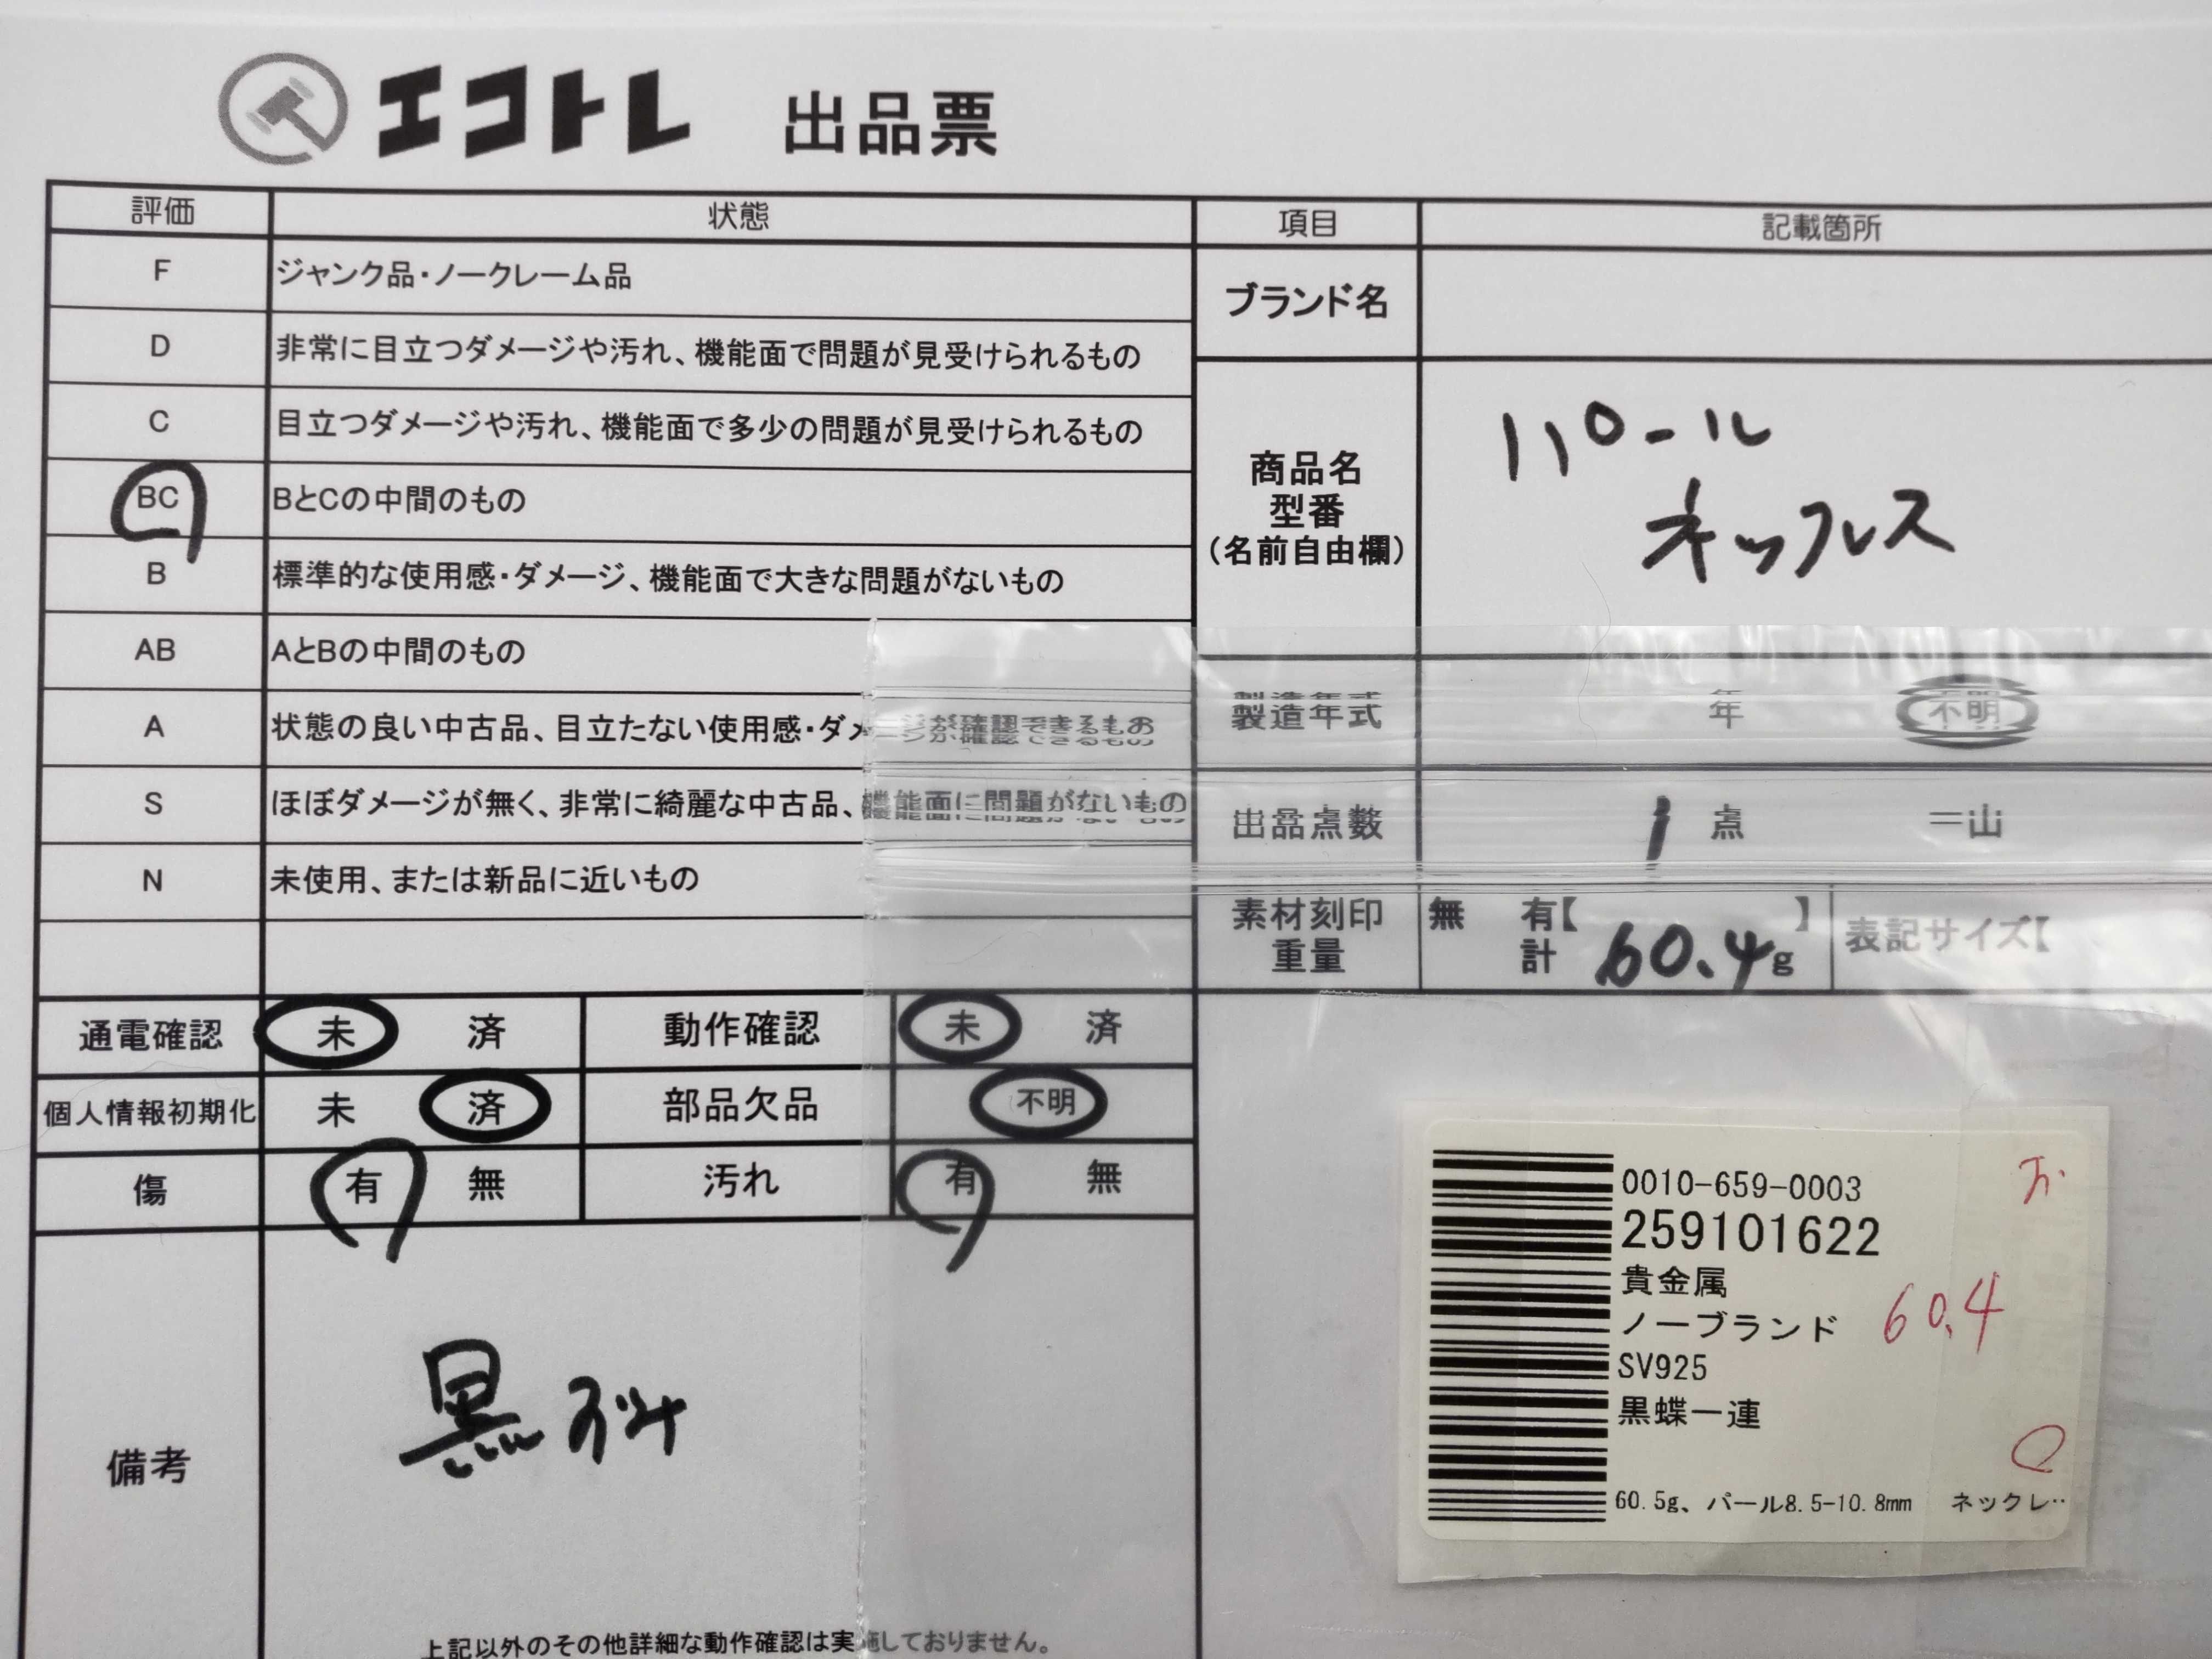 エコトレ 出品票
評価 状態
F ジャンク品・ノークレーム品
D 非常に目立つダメージや汚れ、機能面で問題が見受けられるもの
C 目立つダメージや汚れ、機能面で多少の問題が見受けられるもの
BC BとCの中間のもの
B 標準的な使用感・ダメージ、機能面で大きな問題がないもの
AB AとBの中間のもの
A 状態の良い中古品、目立たない使用感・ダメージが確認できるもの
S ほぼダメージが無く、非常に綺麗な中古品、機能面に問題がないもの
N 未使用、または新品に近いもの
通電確認 未 済 動作確認 未 済
個人情報初期化 未 済 部品欠品 不明
傷 有 無 汚れ 有 無
備考
黒
上記以外のその他詳細な動作確認は実施しておりません。
項目 記載箇所
ブランド名
商品名
型番
(名前自由欄)
パール
ネックレス
製造年式 年 不明
出品点数 1 点 =山
素材刻印 無 有【 】
重量 計 60.4g
表記サイズ【
0010-659-0003
259101622
貴金属
ノーブランド 60.4
SV925
黒蝶一連
60.5g、パール8.5-10.8mm ネックレ‥